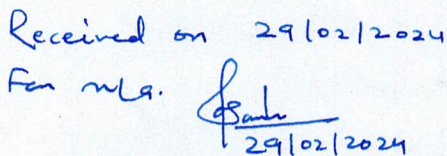 Received on 29/02/2024
For M/s.
29/02/2024